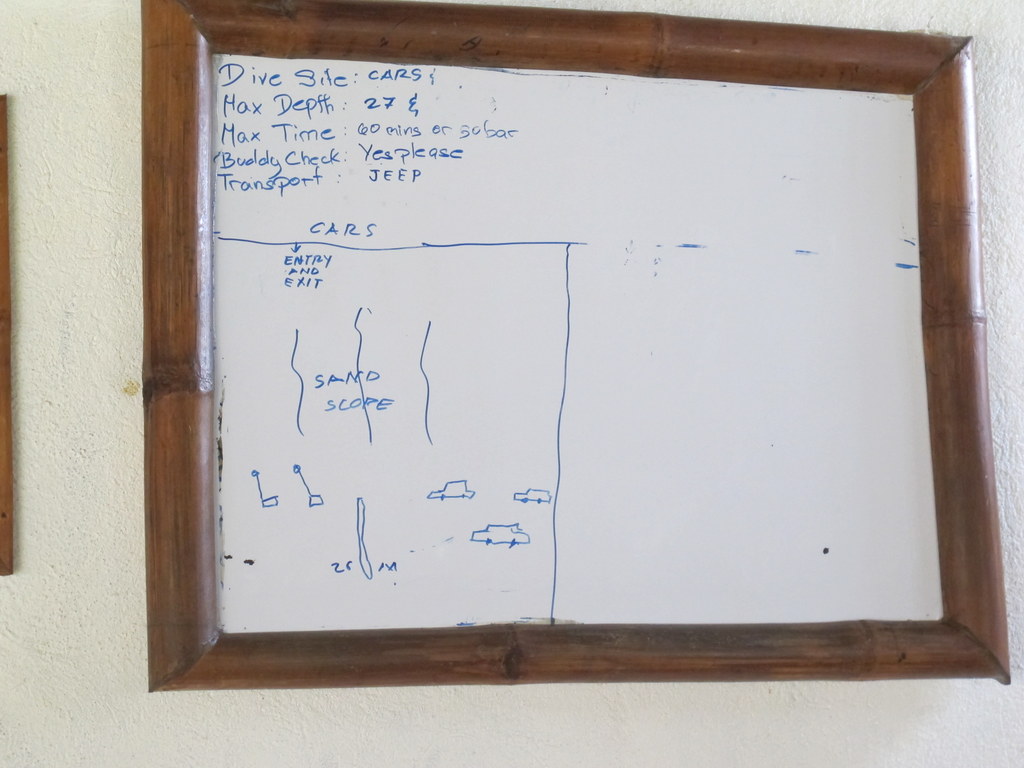 Dive Site: CARS
Max Depth: 27
Max Time: 60 mins or 50bar
Buddy Check: Yes please
Transport: JEEP
CARS
ENTRY
AND
EXIT
SAND
SLOPE
M